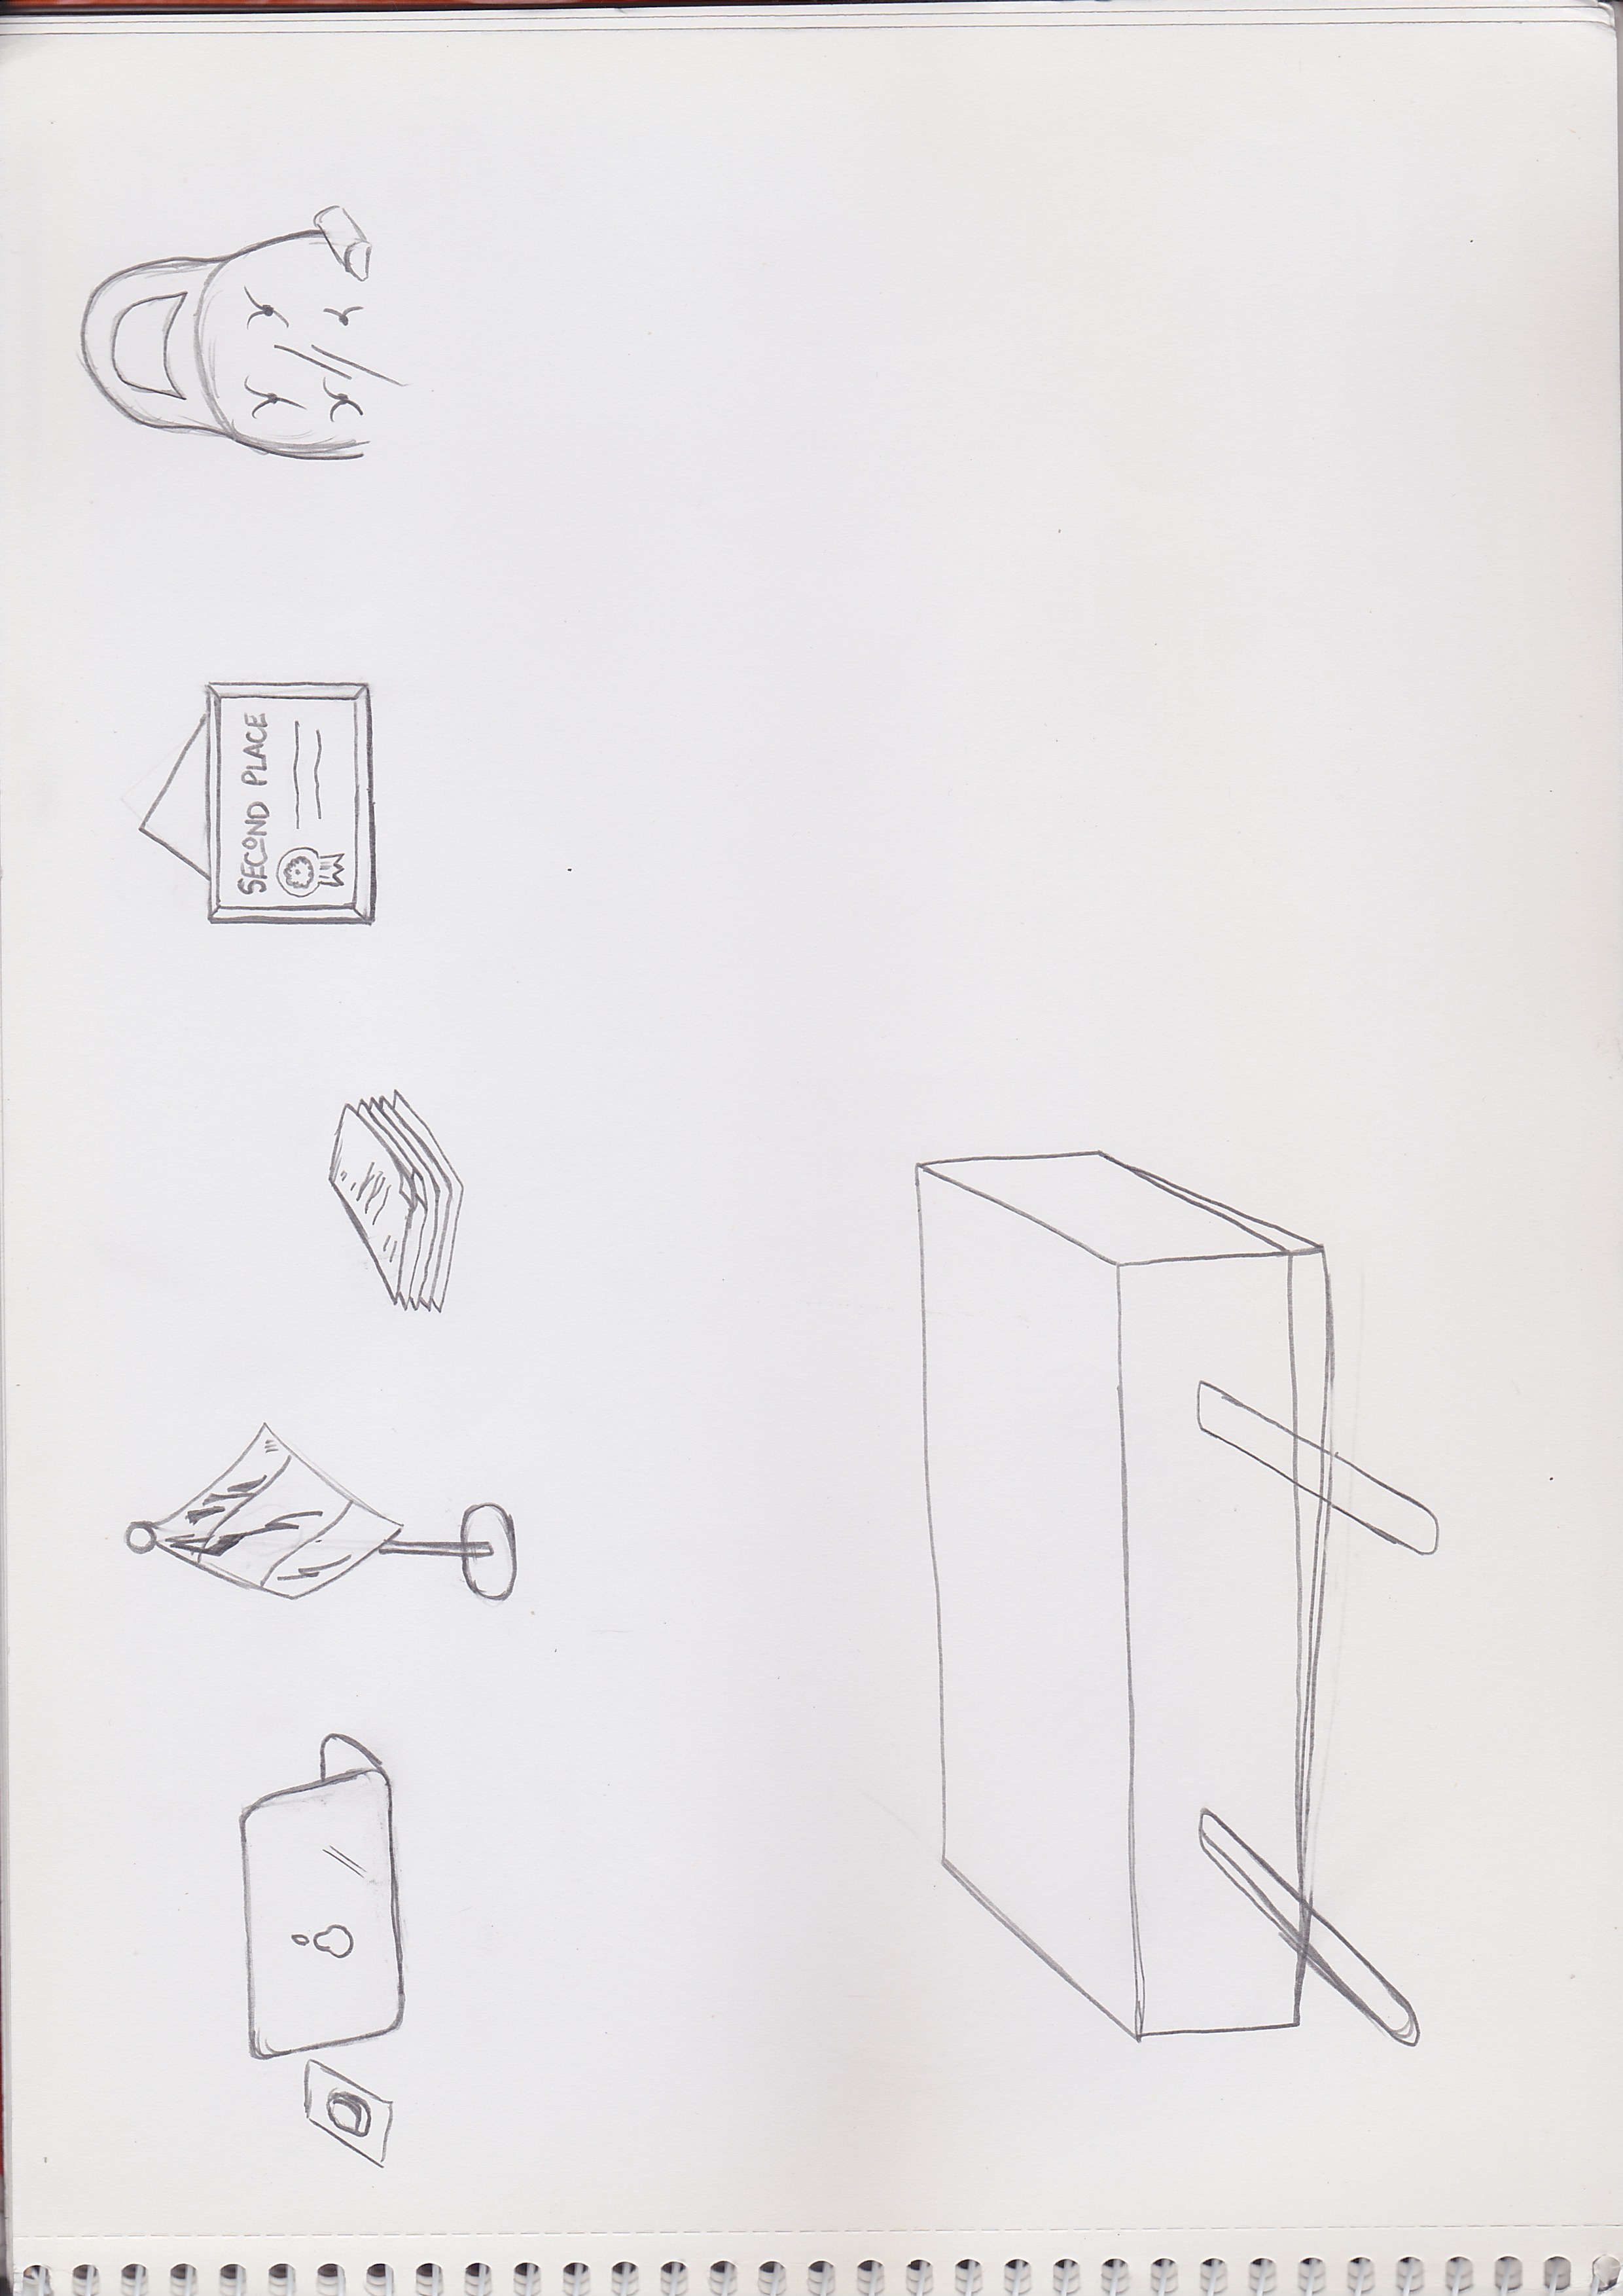 SECOND PLACE